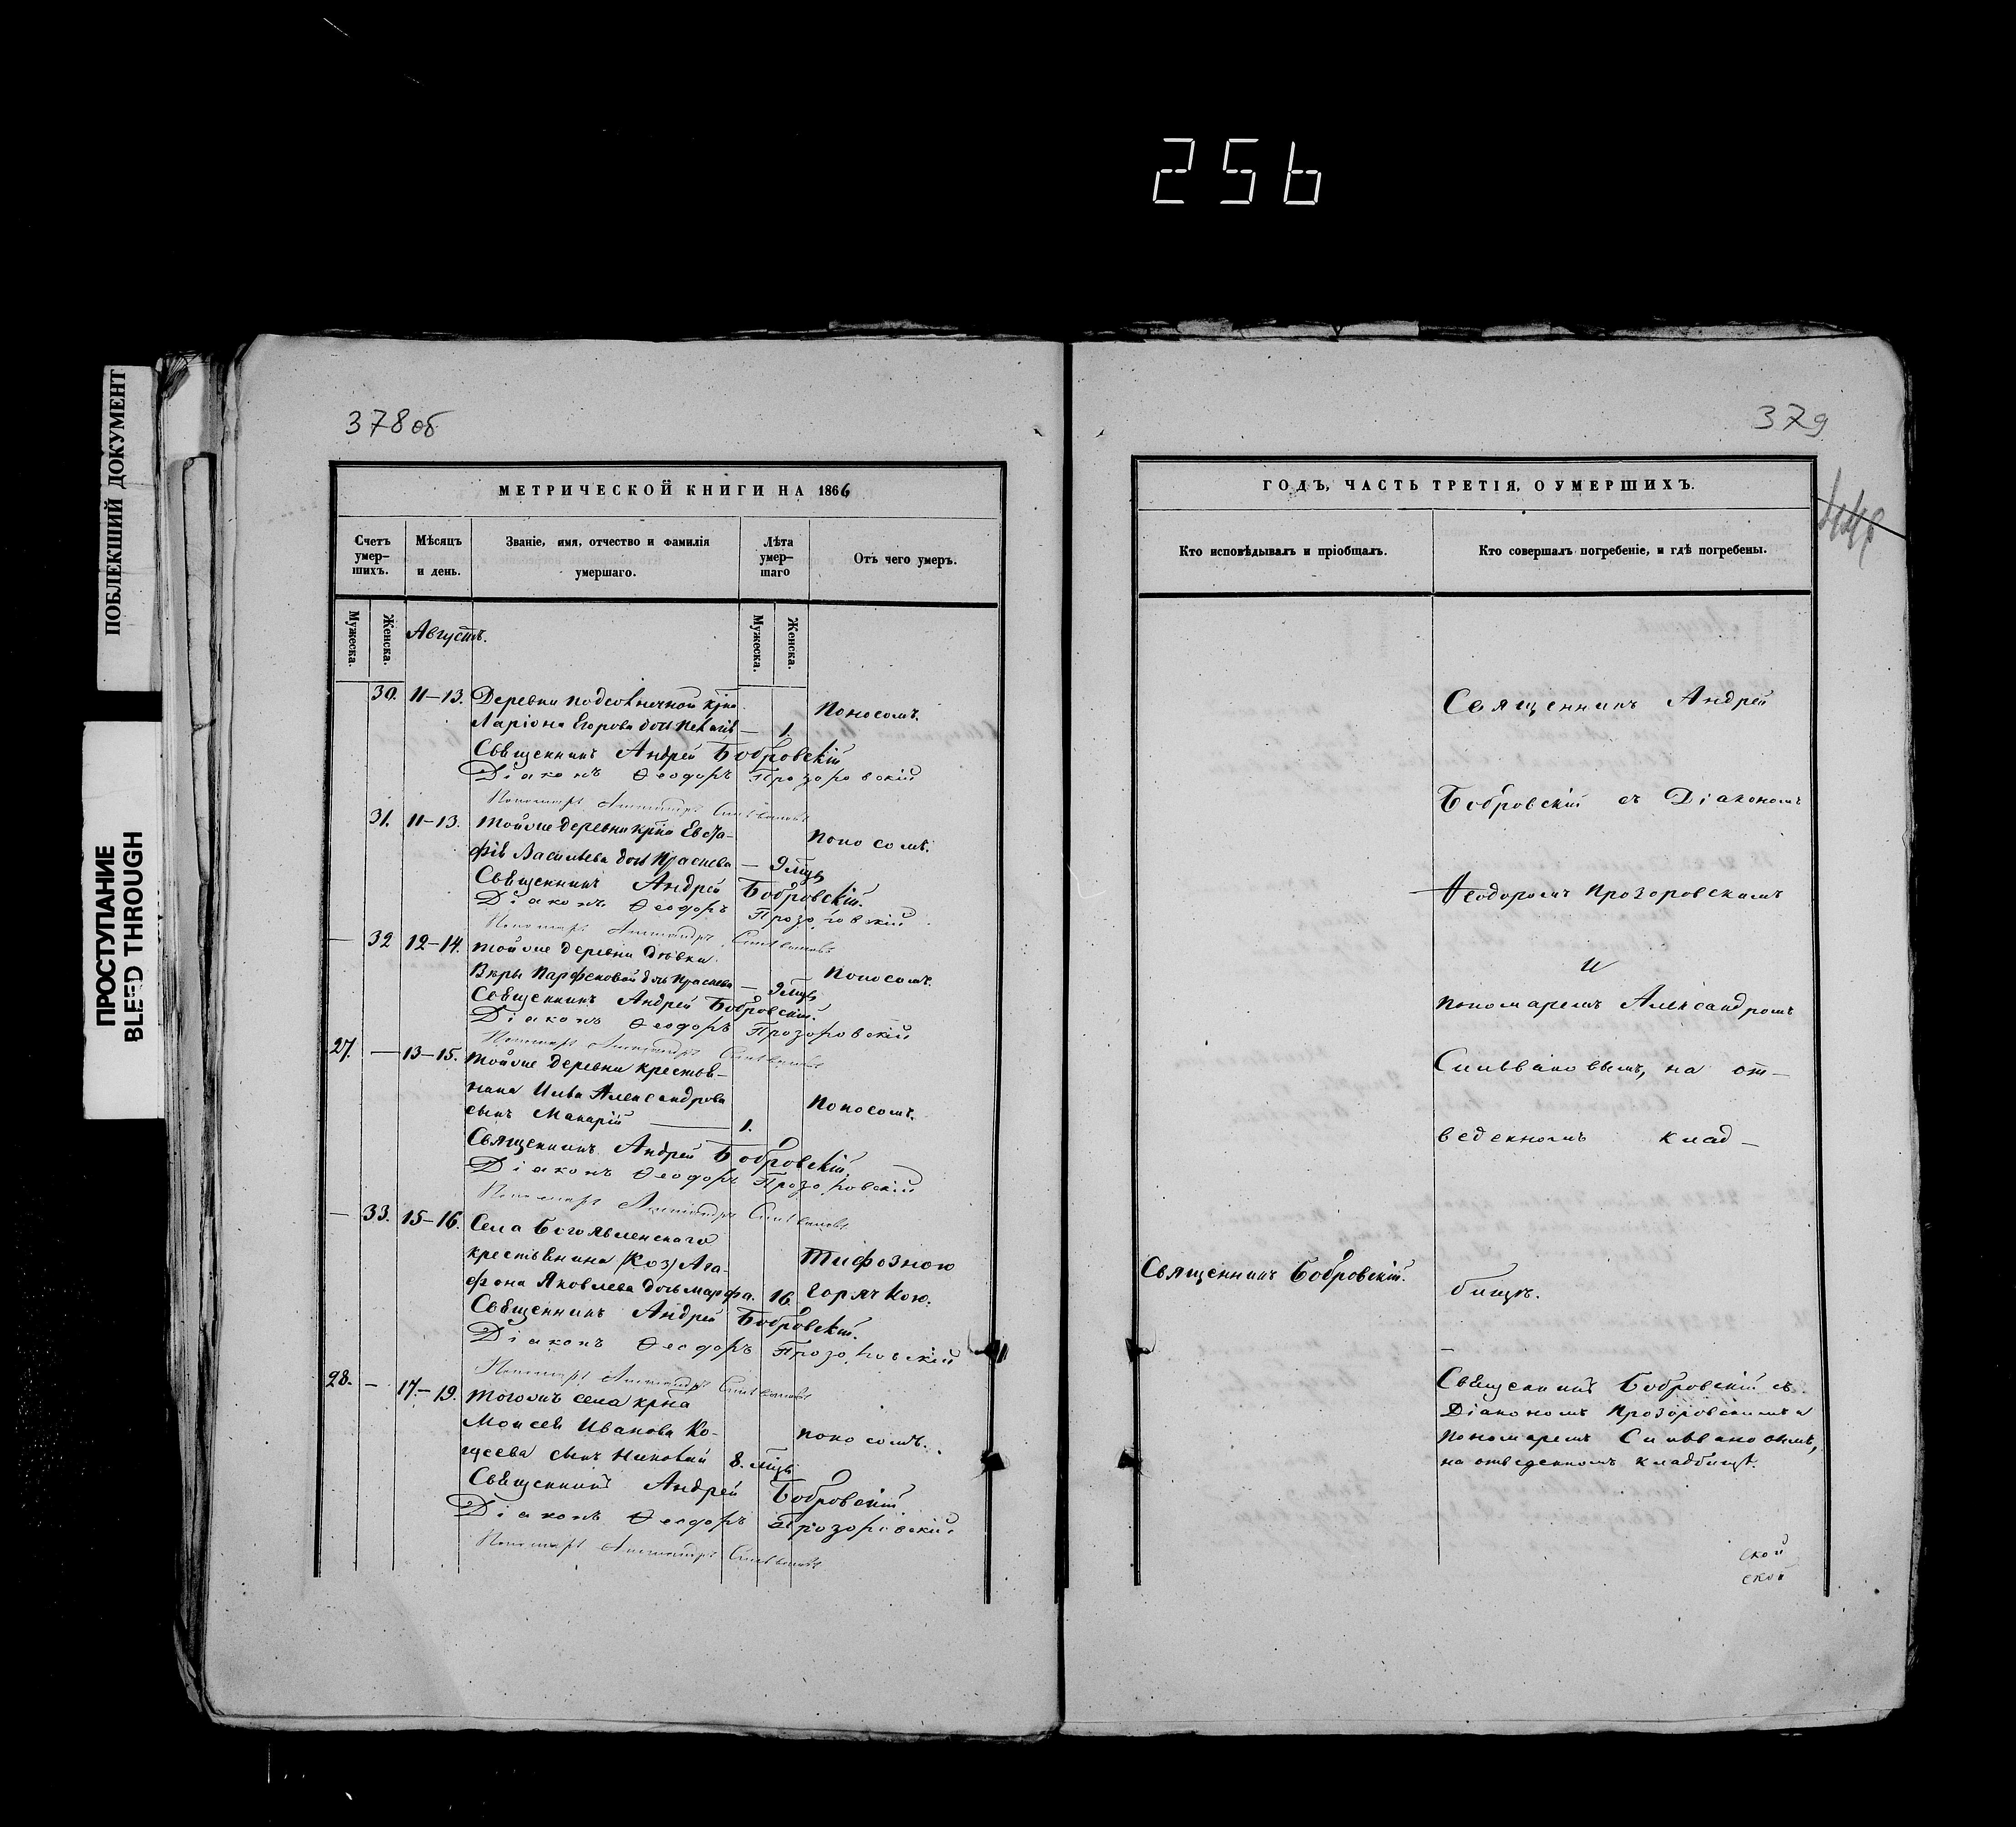 256
ПОБЛЕКШИЙ ДОКУМЕНТ
ПРОСТУПАНИЕ
BLEED THROUGH
378об
МЕТРИЧЕСКОЙ КНИГИ НА 1866
Счетъ умер-шихъ.
Мѣсяцъ и день.
Званіе, имя, отчество и фамилія умершаго.
Лѣта умер-шаго
Отъ чего умеръ.
Мужеска.
Женска.
Августъ.
Мужеска.
Женска.
30. 11–13. Деревни крна
Ларіона Егорова дочь — 1. Поносомъ.
Священникъ Андрей Бобровскій
Діаконъ Ѳеодоръ Прозоровскій
Пономарь Александръ Сильвановъ
31. 11–13. Тойже деревни крна Евста-
фія Васильева дочь — 9 мцъ Поносомъ.
Священникъ Андрей Бобровскій.
Діаконъ Ѳеодоръ Прозоровскій
Пономарь Александръ Сильвановъ
— 32 12–14. Тойже деревни дѣвки
Вѣры Парфеновой дочь — 9 мцъ Поносомъ.
Священникъ Андрей Бобровскій.
Діаконъ Ѳеодоръ Прозоровскій
Пономарь Александръ Сильвановъ
27. — 13–15. Тойже деревни крестья-
нина Ильи Александрова
сынъ Макарій — 1. Поносомъ.
Священникъ Андрей Бобровскій.
Діаконъ Ѳеодоръ Прозоровскій
Пономарь Александръ Сильвановъ
— 33. 15–16. Села Богоявленскаго
крестьянина (Коз) Ага-
фона Яковлева дочь Марфа. 16 Тифозною горячкою.
Священникъ Андрей Бобровскій.
Діаконъ Ѳеодоръ Прозоровскій
Пономарь Александръ Сильвановъ
28. — 17.–19. Тогожъ села крна
Моисея Иванова Ко-
щеева сынъ 8. мцъ Поносомъ.
Священникъ Андрей Бобровскій
Діаконъ Ѳеодоръ Прозоровскій
Пономарь Александръ Сильвановъ
379
ГОДЪ, ЧАСТЬ ТРЕТІЯ, О УМЕРШИХЪ.
Кто исповѣдывалъ и пріобщалъ.
Кто совершалъ погребеніе, и гдѣ погребены.
Священникъ Андрей
Бобровскій съ Діакономъ
Ѳеодоромъ Прозоровскимъ
и
пономаремъ Александромъ
Сильвановымъ, на от-
веденномъ клад-
Священникъ Бобровскій.
бищѣ.
Священникъ Бобровскій съ
Діакономъ Прозоровскимъ и
пономаремъ Сильвановымъ,
на отведенномъ кладбищѣ.
ской
ской